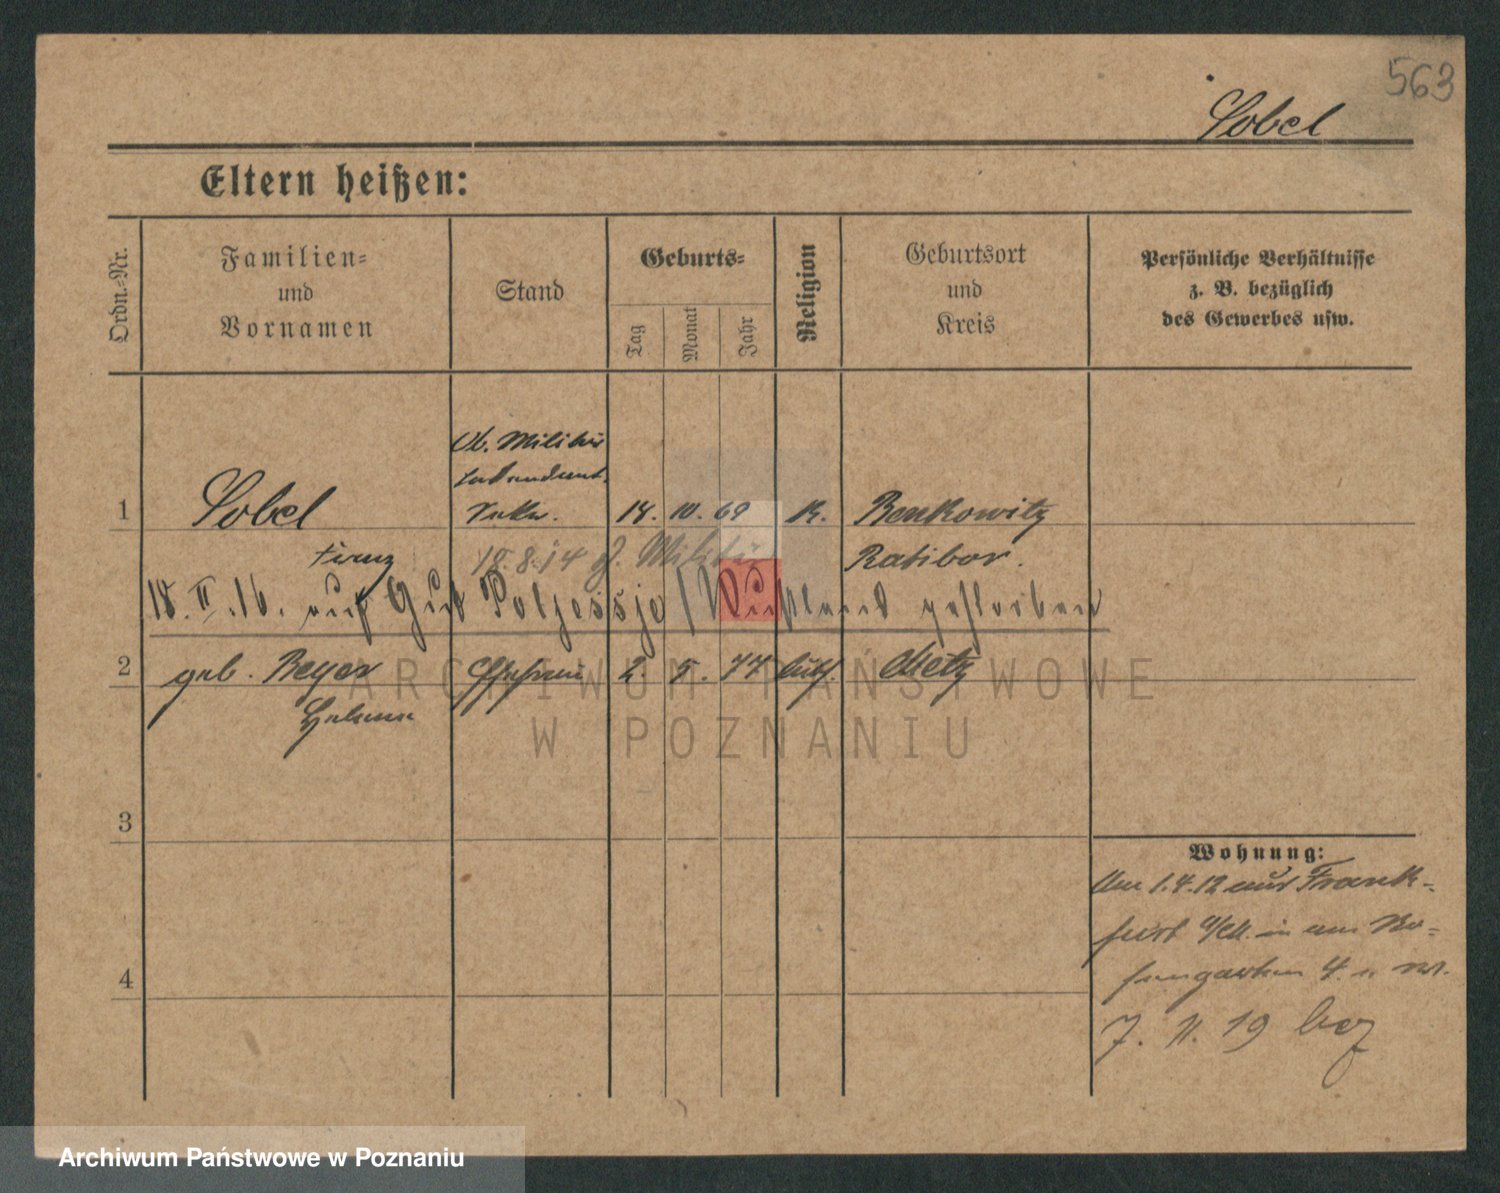 563
Sobel
Eltern heißen:
Ordn.-Nr.
Familien-
und
Vornamen
Stand
Geburts-
Tag
Monat
Jahr
Religion
Geburtsort
und
Kreis
Persönliche Verhältnisse
z. B. bezüglich
des Gewerbes usw.
Ob. Militär
Intendant.
1 Sobel Sekr. 18. 10. 69 K. Benkowitz
Franz 18.8.14 z. Militär Ratibor.
18. II. 16. auf Gut Poljessje / Rußland gestorben
2 geb. Beyer Ehefrau 2. 5. 77 luth. Metz
Helene
3
4
Wohnung:
Am 1.4.12 aus Frank-
furt a/M. in am Ro-
sengarten 4. n. W.
7. 11. 19
ARCHIWUM PAŃSTWOWE
W POZNANIU
Archiwum Państwowe w Poznaniu